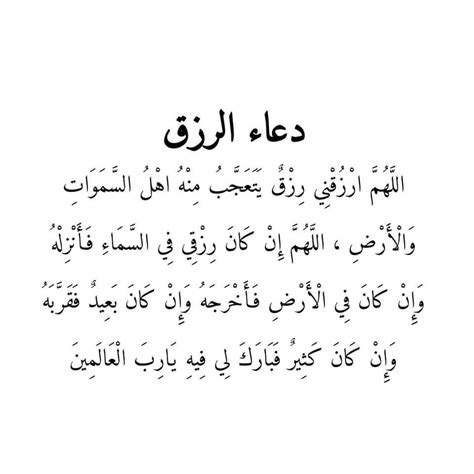 دعاء الرزق
اللَّهُمَّ ارْزُقْنِي رِزْقٌ يَتَعَجَّبُ مِنْهُ اهْلُ السَّمَوَاتِ
وَالْأَرْضِ ، اللَّهُمَّ إِنْ كَانَ رِزْقِي فِي السَّمَاءِ فَأَنْزِلْهُ
وَإِنْ كَانَ فِي الْأَرْضِ فَأَخْرَجَهُ وَإِنْ كَانَ بَعِيدٌ فَقَرَّبَهُ
وَإِنْ كَانَ كَثِيرٌ فَبَارَكَ لِي فِيهِ يَارِبَ الْعَالَمِينَ